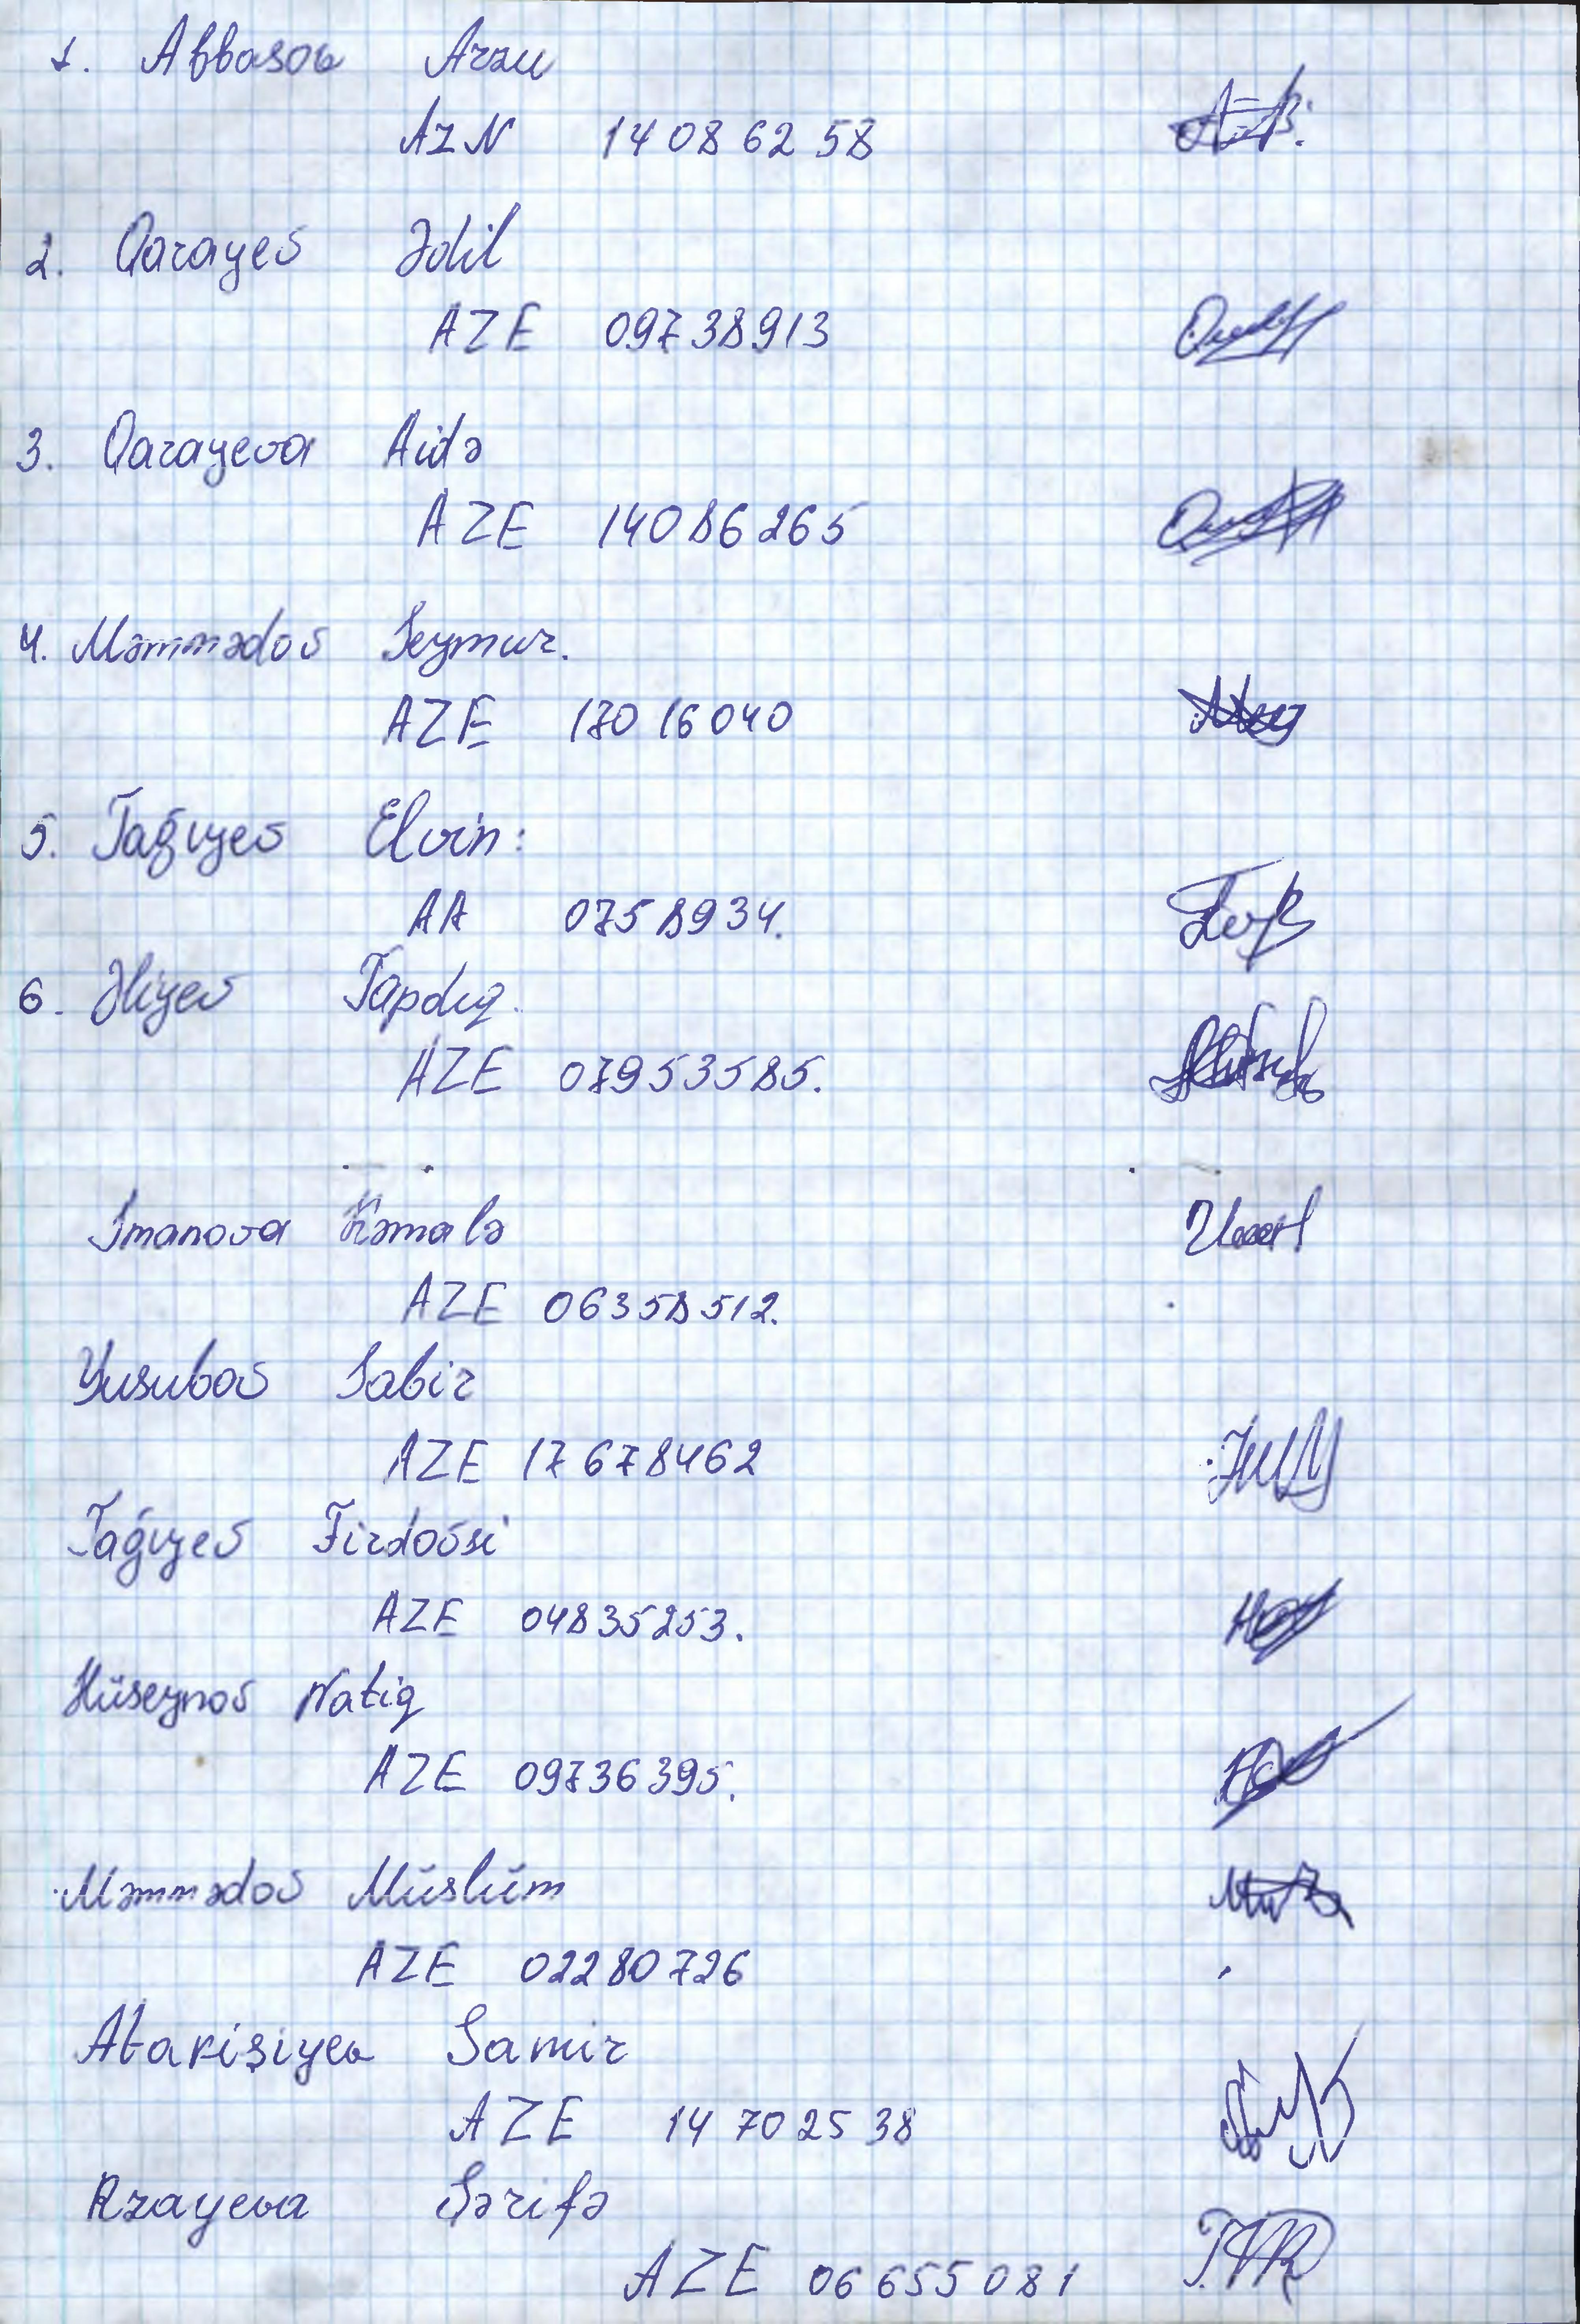 1. Abbasov Arzu
AZN 14086258
2. Qarayev Ədil
AZE 09738913
3. Qarayeva Aidə
AZE 14086265
4. Məmmədov Seymur.
AZE 17016040
5. Tağıyev Elvin:
AA 0758934.
6. Əliyev Tapdıq.
AZE 07953585.
İmanova Kəmalə
AZE 06358512.
Yusubov Sabir
AZE 17678462
Tağıyev Firdovsi
AZE 04835253.
Hüseynov Natiq
AZE 09736395.
Məmmədov Müslüm
AZE 02280726
Atakişiyev Samir
AZE 14702538
Rzayeva Şərifə
AZE 06655081